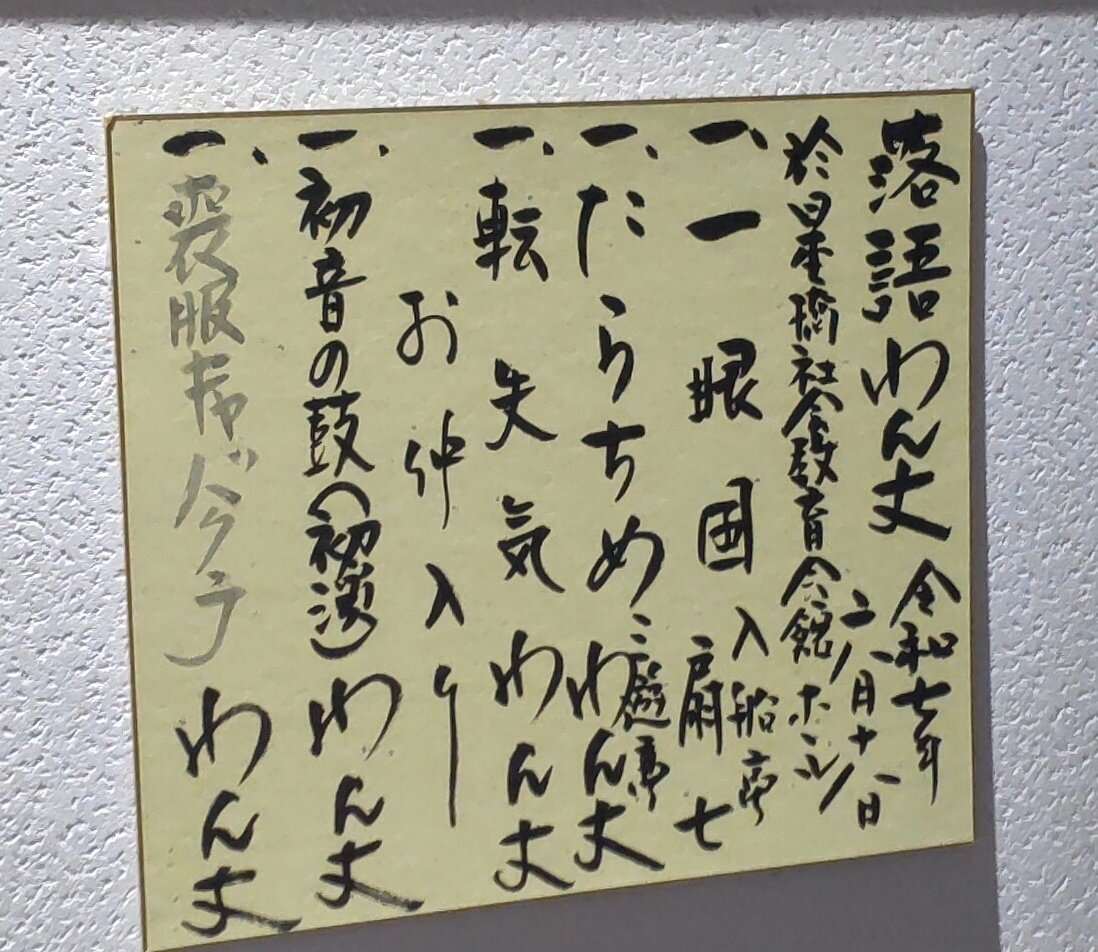 落語わん丈 令和七年
二月十八日
於日本橋社会教育会館ホール
一、一眼国 入船亭扇七
一、たらちめ 三遊亭わん丈
一、転失気 わん丈
お仲入り
一、初音の鼓(初演) わん丈
一、喪服キャバクラ わん丈